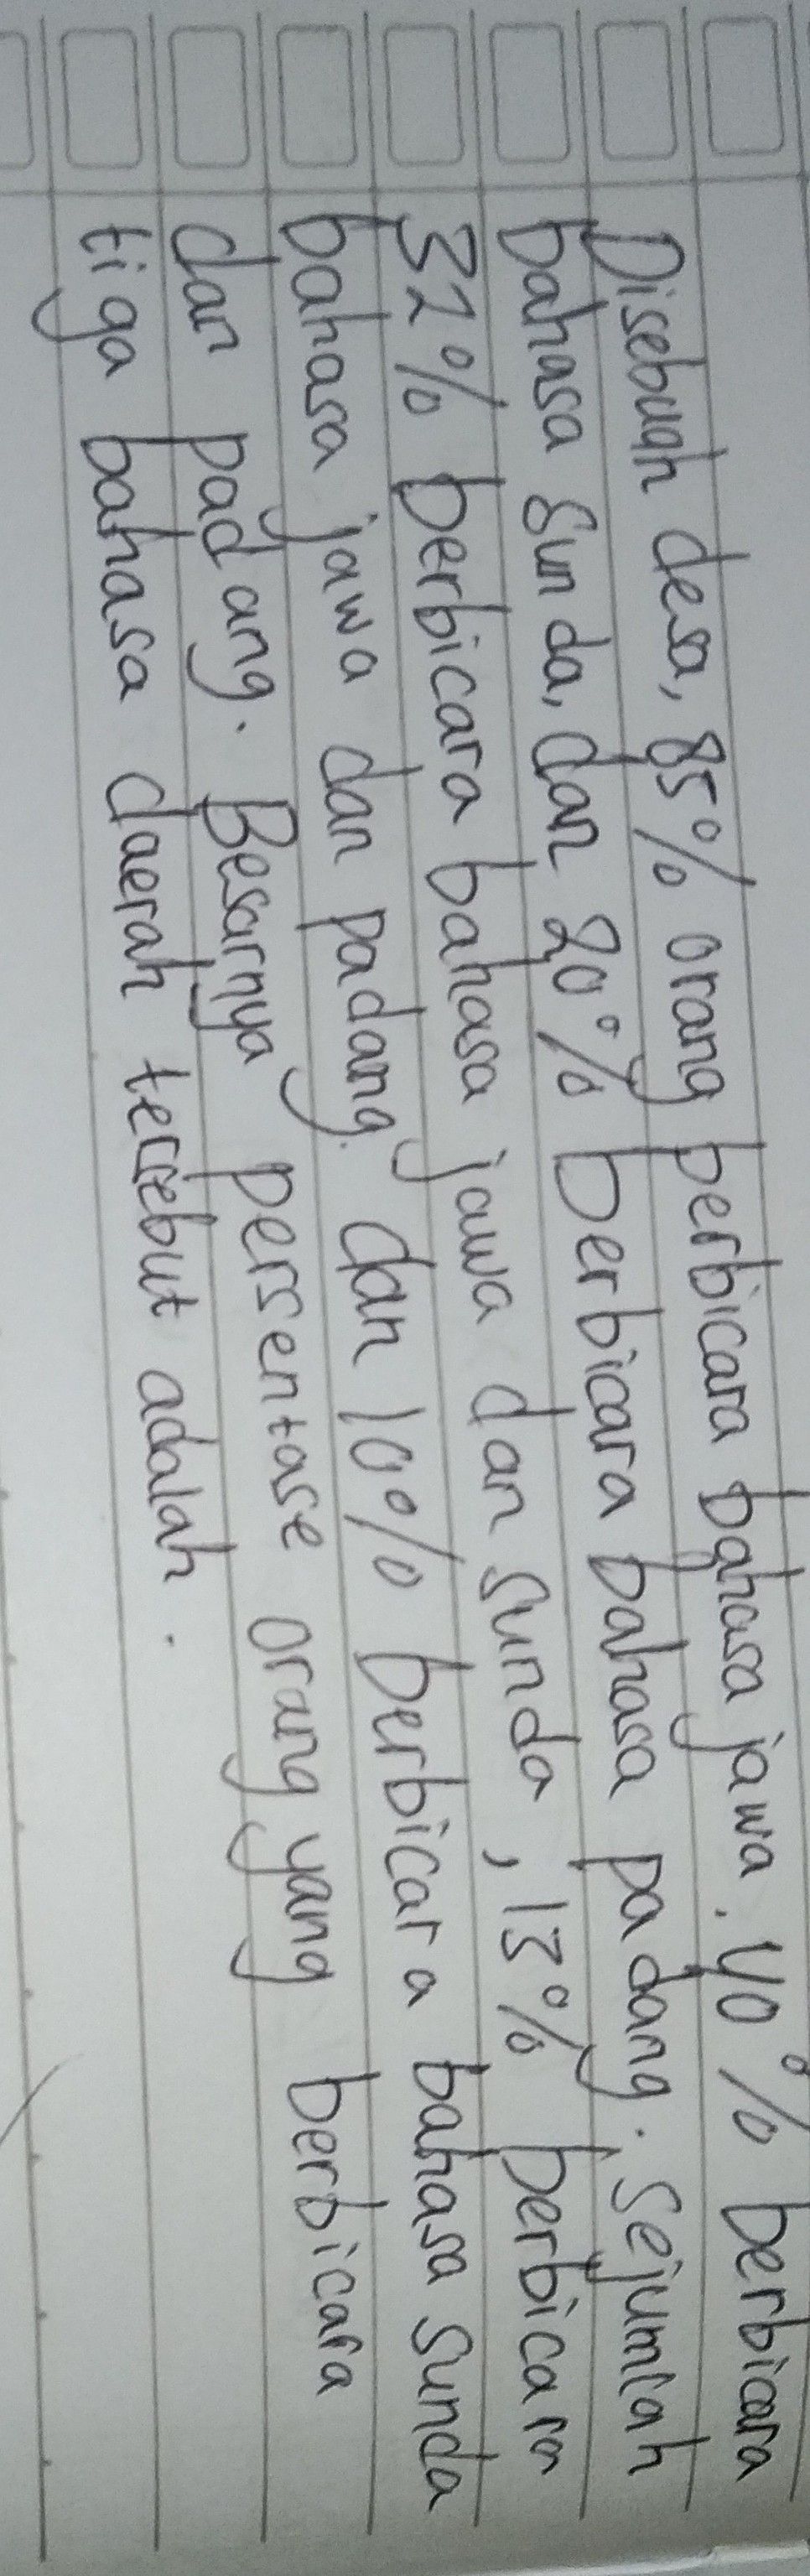 Disebuah desa, 85% orang berbicara bahasa jawa. 40% berbicara
bahasa sunda, dan 20% berbicara bahasa padang. Sejumlah
32% berbicara bahasa jawa dan sunda, 13% berbicara
bahasa jawa dan padang. dan 10% berbicara bahasa sunda
dan padang. Besarnya persentase orang yang berbicara
tiga bahasa daerah tersebut adalah.